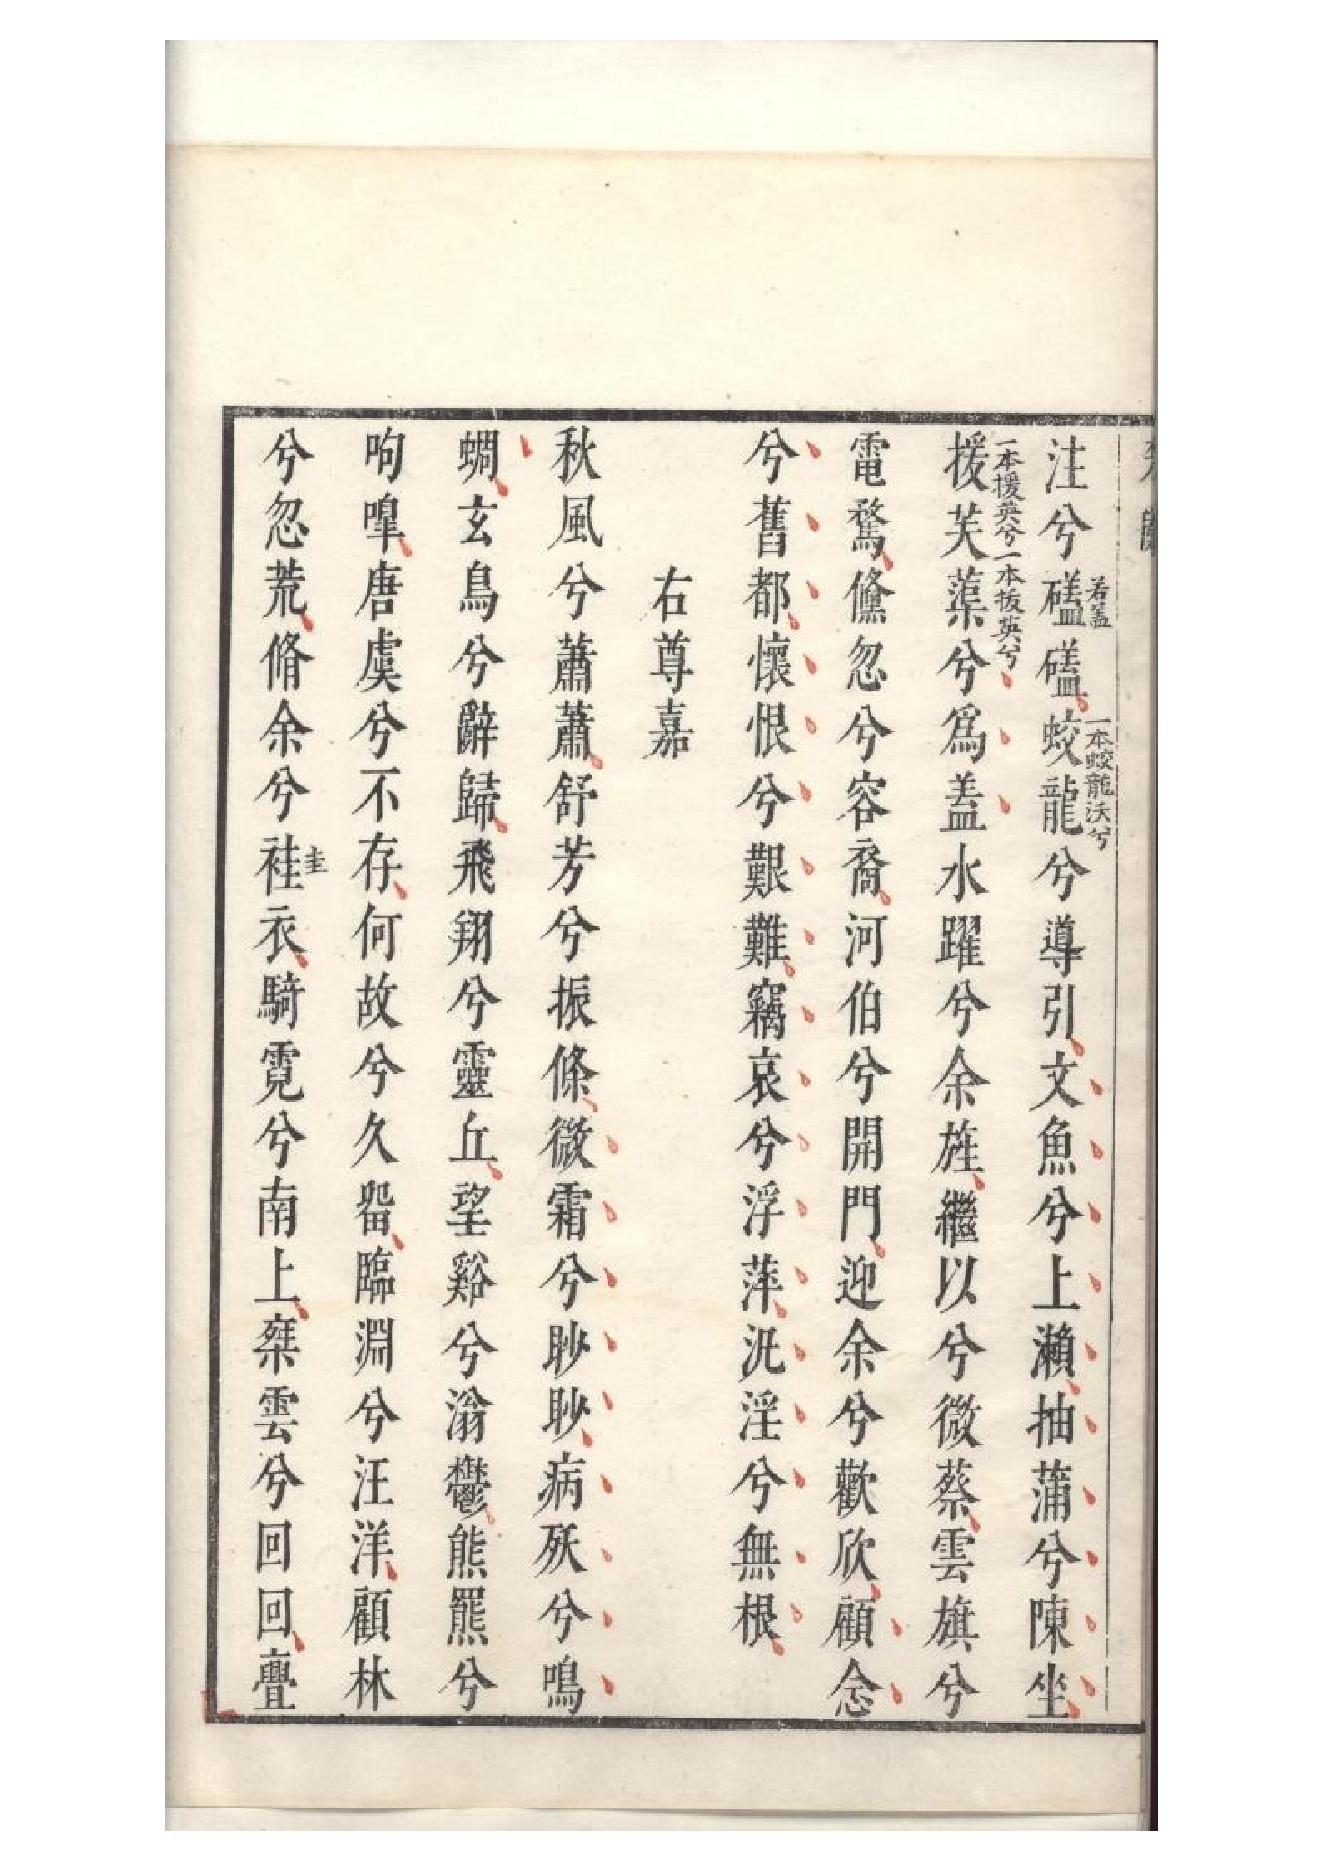 注兮礚若蓋礚蛟一本蛟龍沃兮龍兮導引文魚兮上瀨抽蒲兮陳坐
援一本援英兮一本拔英兮芙蕖兮爲盖水躍兮余旌繼以兮微蔡雲旗兮
電騖儵忽兮容裔河伯兮開門迎余兮歡欣顧念
兮舊都懷恨兮艱難竊哀兮浮萍汎淫兮無根
右尊嘉
秋風兮蕭蕭舒芳兮振條微霜兮眇眇病殀兮鳴
蜩玄鳥兮辭歸飛翔兮靈丘望谿兮滃鬱熊羆兮
呴嘷唐虞兮不存何故兮久畱臨淵兮汪洋顧林
兮忽荒脩余兮袿圭衣騎霓兮南上椉雲兮回回亹